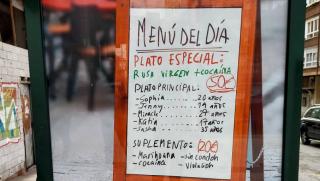 MENÚ DEL DÍA
PLATO ESPECIAL:
RUSA VIRGEN + COCAÍNA 50€
PLATO PRINCIPAL:
- Sophia ..... 20 años
- Jenny ..... 19 años
- Miracle ..... 27 años
- Katia ..... 17 años
- Sasha ..... 35 años
SUPLEMENTO: 20€
- Marihuana - sin condón
- cocaína - violación